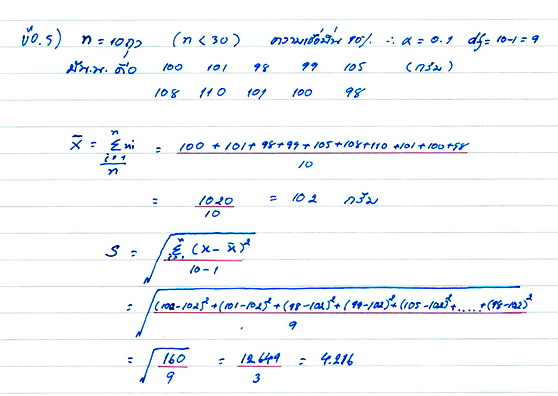 ข้อ.5) n = 10ถุง (n < 30) ความเชื่อมั่น 90% ∴ α = 0.1 df = 10-1 = 9
มีน.น. คือ 100 101 98 99 105 (กรัม)
108 110 101 100 98
x̄ = Σⁿᵢ₌₁ xi / n = 100 + 101 + 98 + 99 + 105 + 108 + 110 + 101 + 100 + 98 / 10
= 1020 / 10 = 102 กรัม
S = √( Σⁿᵢ₌₁ (x - x̄)² / 10-1 )
= √( (100-102)² + (101-102)² + (98-102)² + (99-102)² + (105-102)² + ..... + (98-102)² / 9 )
= √( 160 / 9 ) = 12.649 / 3 = 4.216